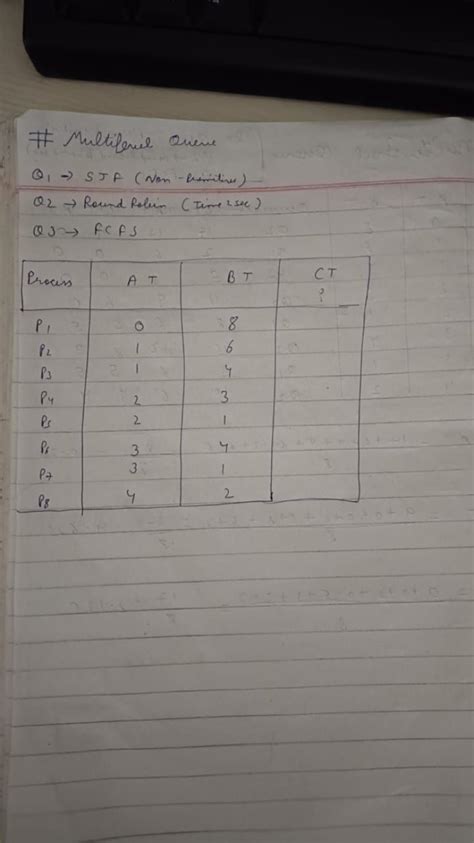 # Multilevel Queue
Q1 → SJF (Non-Primitive)
Q2 → Round Robin (Time 2sec)
Q3 → FCFS
Process AT BT CT
?
P1 0 8
P2 1 6
P3 1 4
P4 2 3
P5 2 1
P6 3 4
P7 3 1
P8 4 2